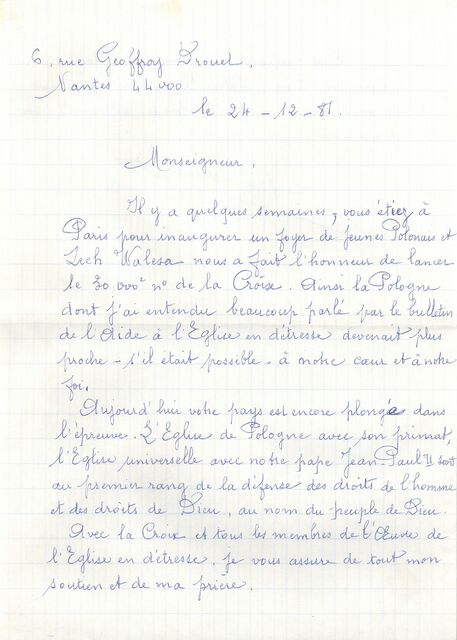 6, rue Geoffroy Drouet,
Nantes 44000
le 24-12-81.
Monseigneur,
Il y a quelques semaines, vous étiez à
Paris pour inaugurer un foyer de jeunes Polonais et
Lech Walesa nous a fait l'honneur de lancer
le 30.000e n° de la Croix. Ainsi la Pologne
dont j'ai entendu beaucoup parlé par le bulletin
de l'Aide à l'Eglise en détresse devenait plus
proche - s'il était possible - à notre cœur et à notre
foi.
Aujourd'hui votre pays est encore plongée dans
l'épreuve. L'Eglise de Pologne avec son primat,
l'Eglise universelle avec notre pape Jean-Paul II sont
au premier rang de la défense des droits de l'homme
et des droits de Dieu, au nom du peuple de Dieu.
Avec la Croix et tous les membres de l'Œuvre de
l'Eglise en détresse, je vous assure de tout mon
soutien et de ma prière.